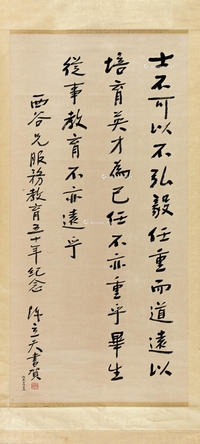 士不可以不弘毅任重而道遠以
培育英才為己任不亦重乎畢生
從事教育不亦遠乎
西谷兄服務教育五十年紀念
陳立夫書賀